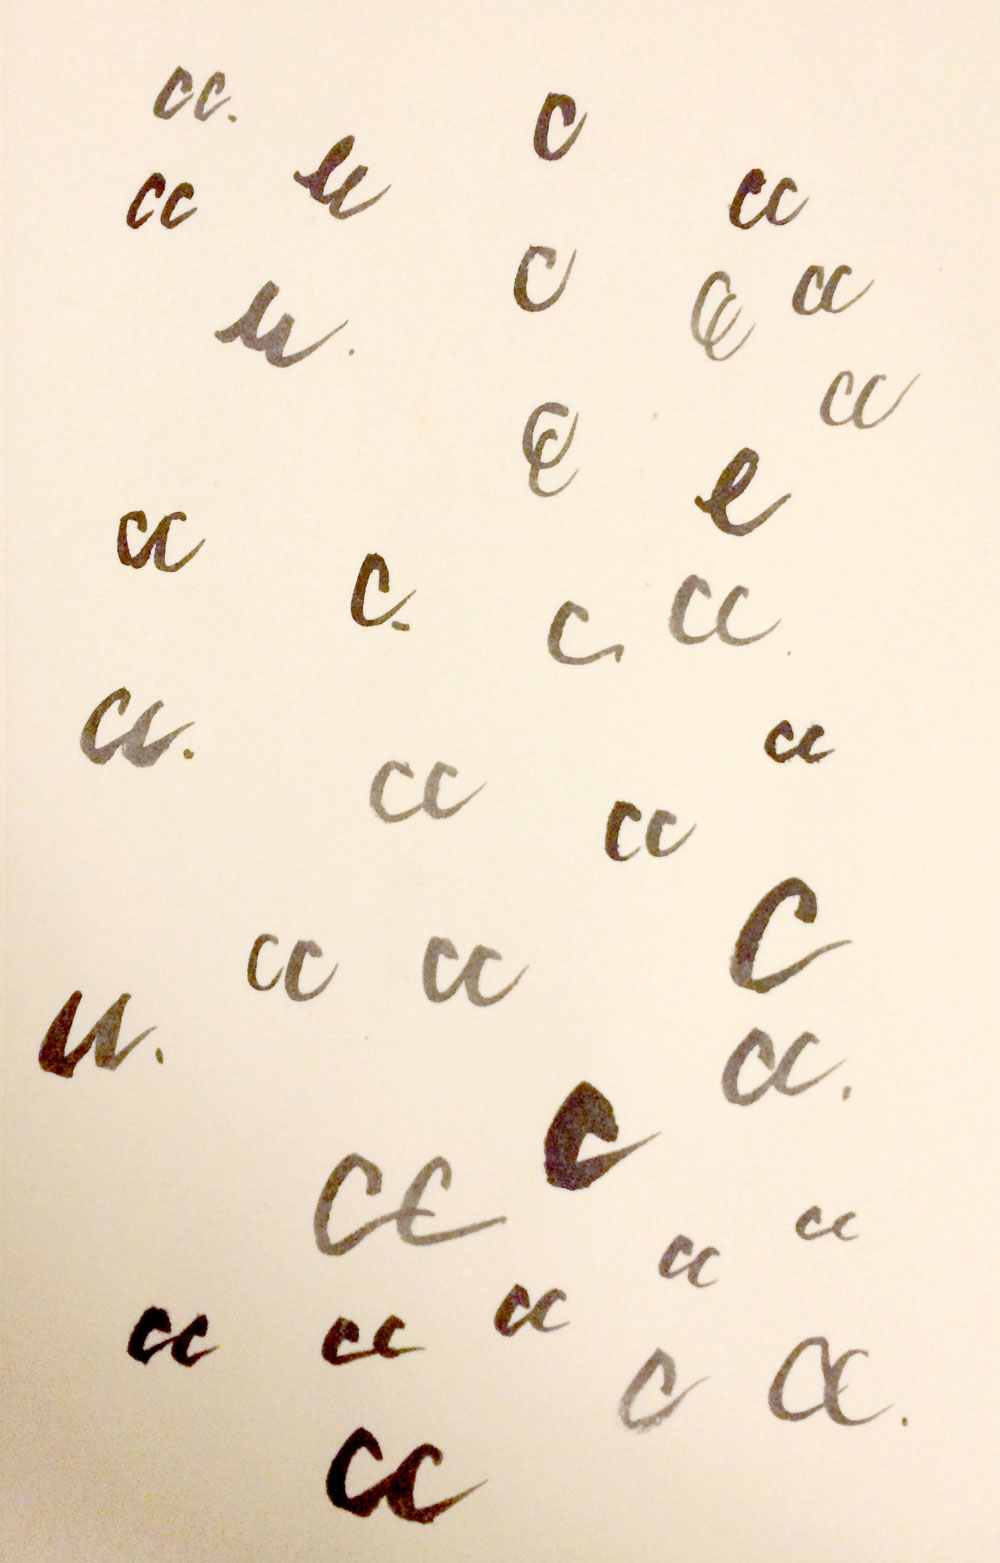 cc.
c
cc
cc
cc
c
cc
cc
cc
cc
c.
c
cc
cc.
cc
cc
cc
c
cc
cc
cc.
c
cc
cc
cc
cc
cc
cc
c
cc.
cc